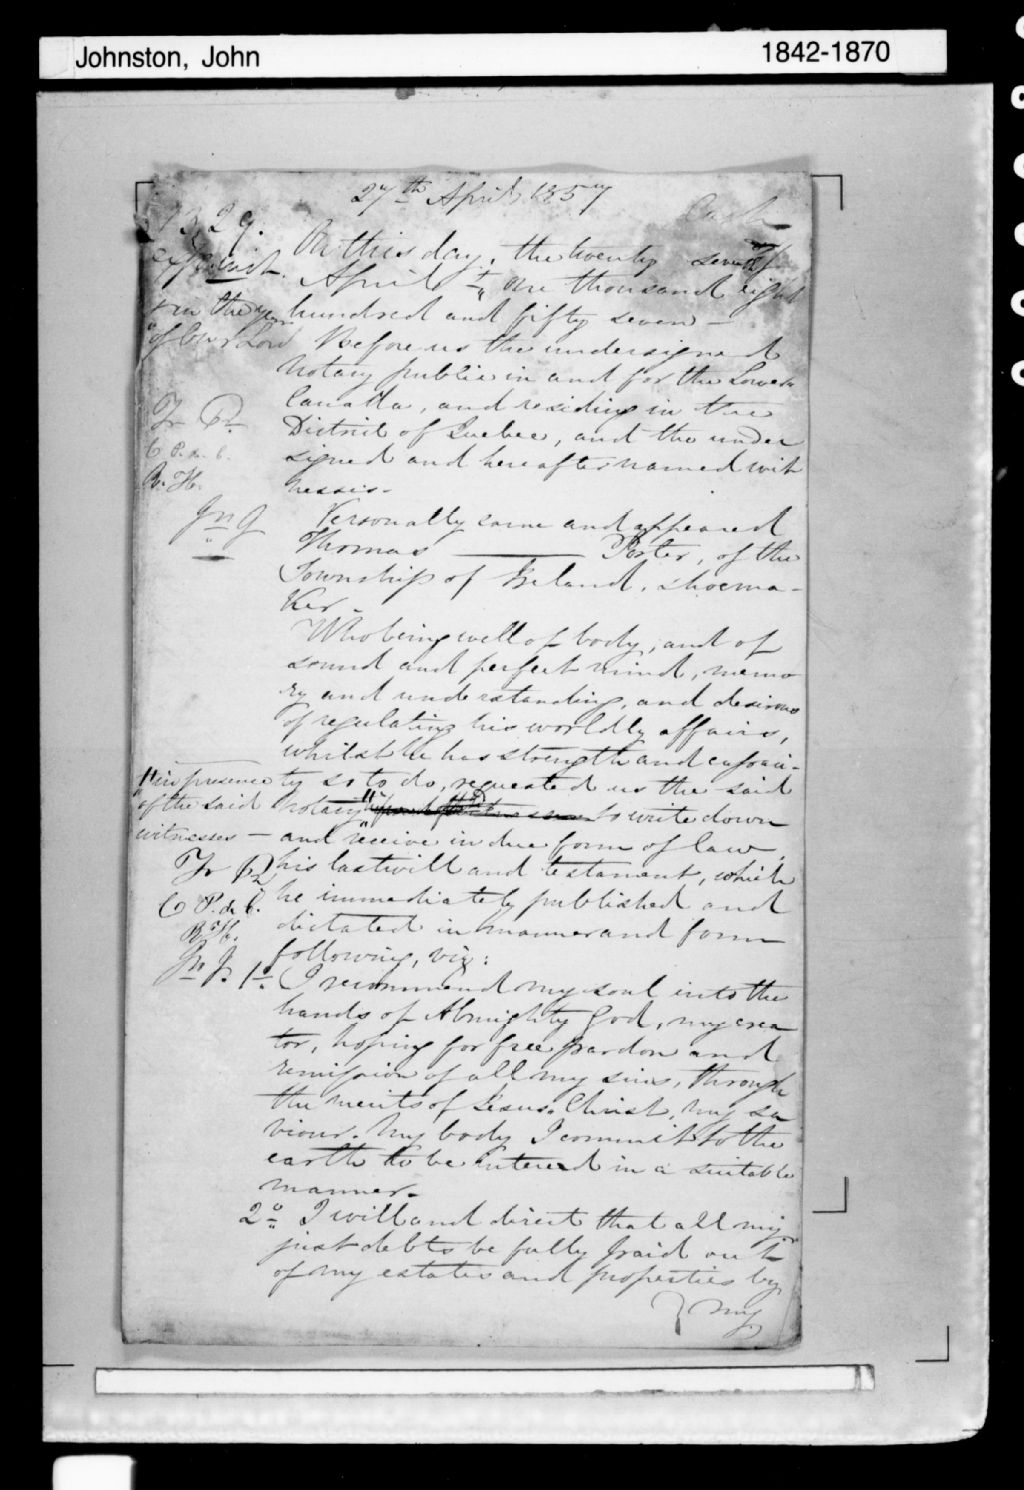 Johnston, John 1842-1870
27th April 1857
1329.
On this day, the twenty seventh
April one thousand eight
in the year
of Our Lord
hundred and fifty seven —
Before us the undersigned
Notary public in and for the Lower
Canada, and residing in the
District of Quebec, and the under
signed and hereafter named wit
nesses.
C. P. de C.
R. H.
Jn J
Personally came and appeared
Thomas ——— Porter, of the
Township of Ireland, shoema-
ker.
Who being well of body, and of
sound and perfect mind, memo
ry and understanding, and desirous
of regulating his worldly affairs,
whilst he has strength and capaci-
ty so to do, requested us the said
in presence
of the said
witnesses —
Notary to write down
and receive in due form of law
his last will and testament, which
he immediately published and
dictated in manner and form
following, viz:
C. P. de C.
R. H.
Jn J.
1o. I recommend my soul into the
hands of Almighty God, my crea
tor, hoping for free pardon and
remission of all my sins, through
the merits of Jesus Christ, my sa
viour. My body I commit to the
earth to be intered in a suitable
manner.
2o I will and direct that all my
just debts be fully paid out
of my estates and properties by
my